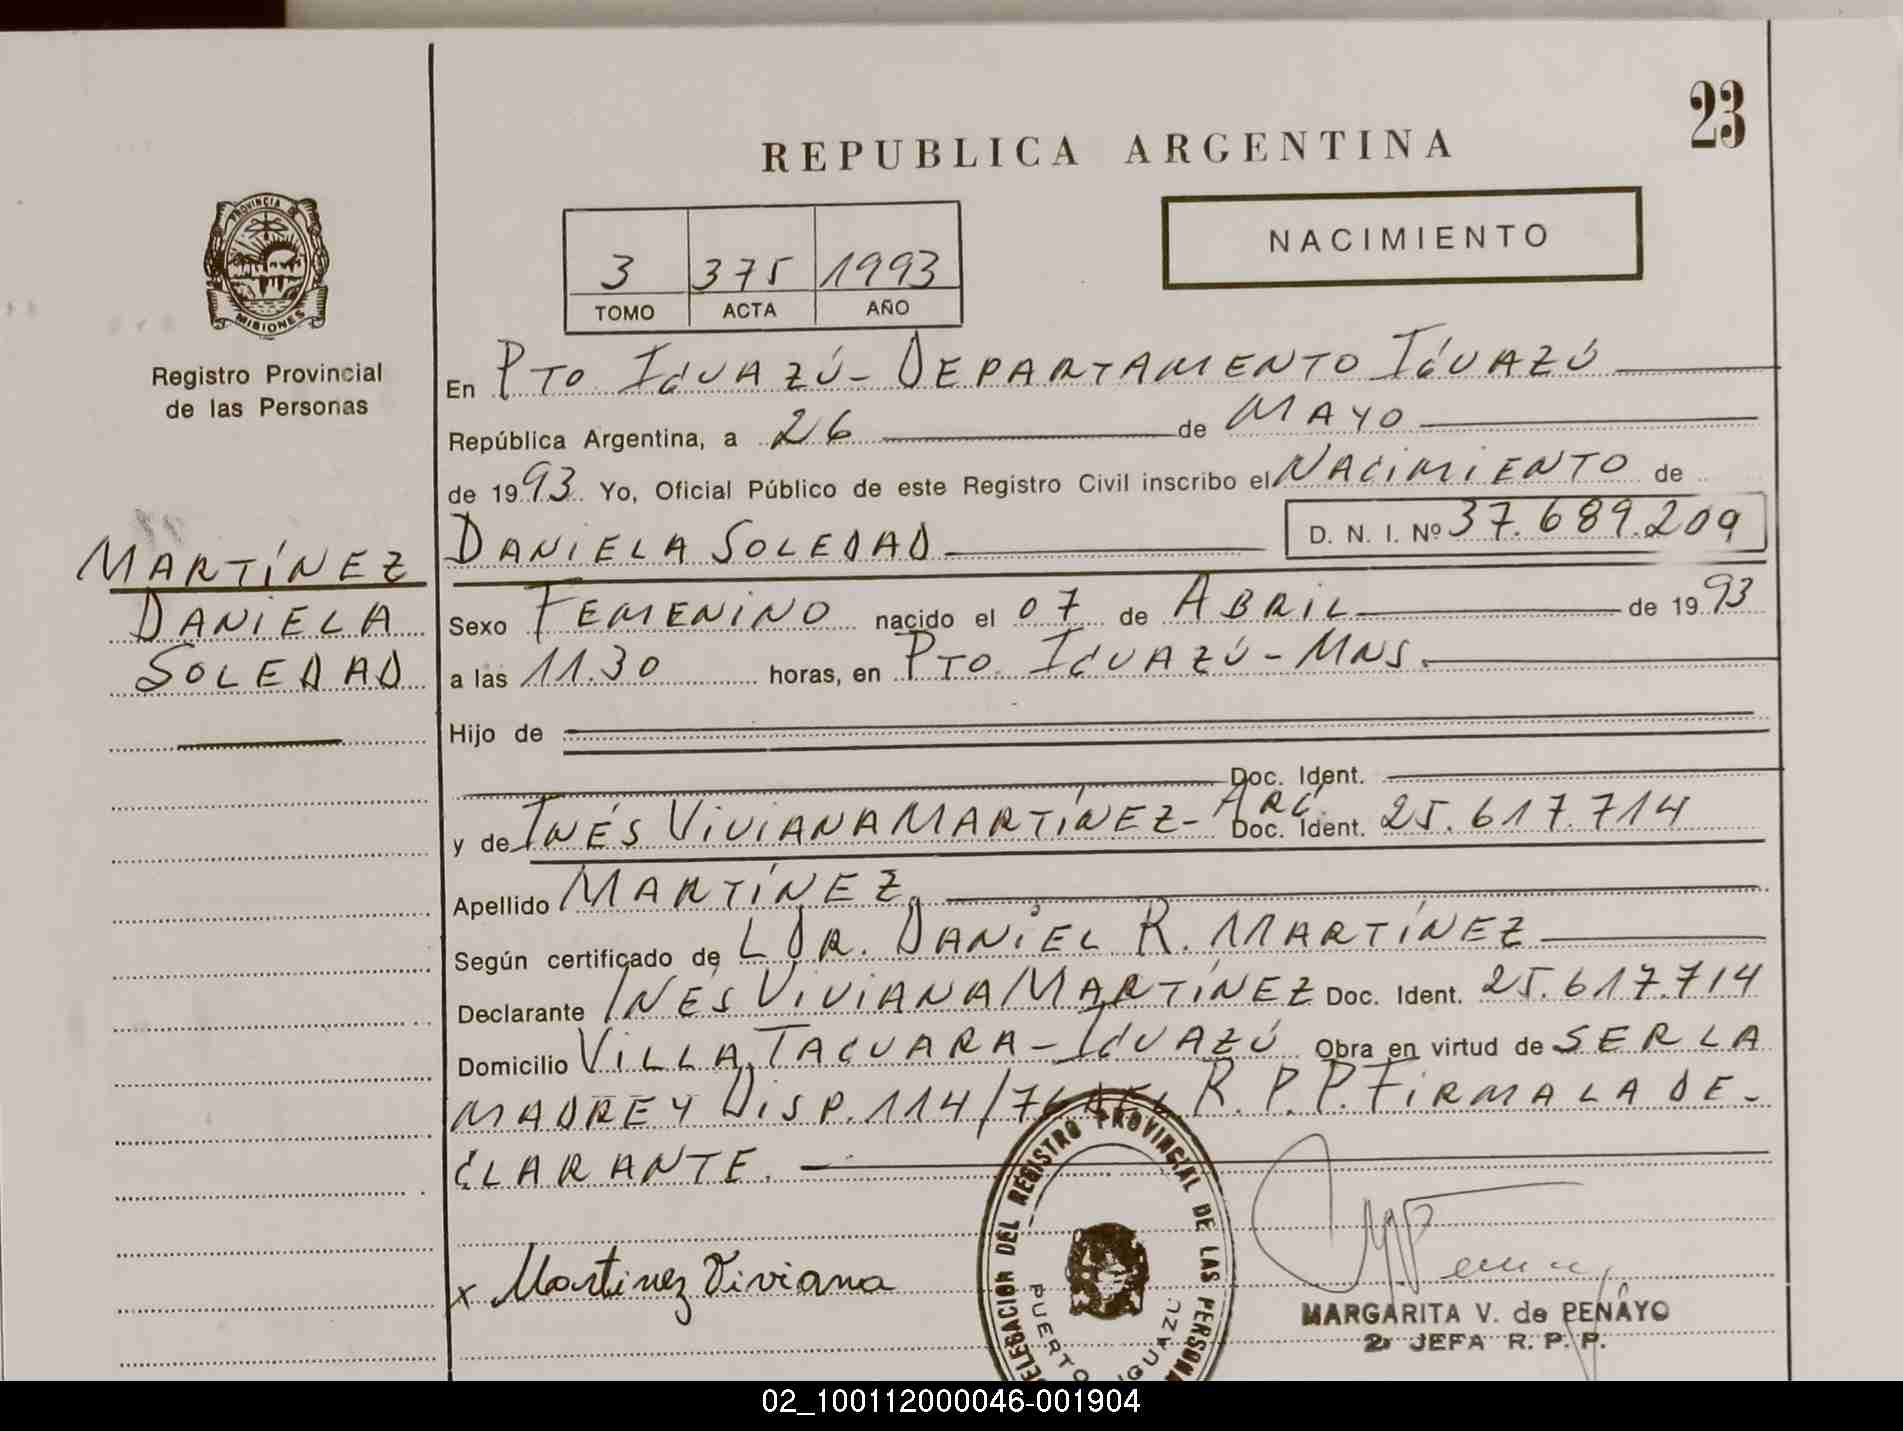 23
REPUBLICA ARGENTINA
PROVINCIA DE
MISIONES
Registro Provincial
de las Personas
3 375 1993
TOMO ACTA AÑO
NACIMIENTO
En PTO. IGUAZÚ - DEPARTAMENTO IGUAZÚ
República Argentina, a 26 de MAYO
de 1993 Yo, Oficial Público de este Registro Civil inscribo el NACIMIENTO de
DANIELA SOLEDAD D. N. I. Nº 37.689.209
MARTÍNEZ
DANIELA
SOLEDAD
Sexo FEMENINO nacido el 07 de ABRIL de 1993
a las 11.30 horas, en PTO. IGUAZÚ - MNS.
Hijo de
Doc. Ident.
y de INÉS VIVIANA MARTÍNEZ - ARG. Doc. Ident. 25.617.714
Apellido MARTÍNEZ
Según certificado de L DR. DANIEL R. MARTÍNEZ
Declarante INÉS VIVIANA MARTÍNEZ Doc. Ident. 25.617.714
Domicilio VILLA TACUARA - IGUAZÚ Obra en virtud de SER LA
MADRE Y DISP. 114/76 R.P.P. FIRMA LA DE-
CLARANTE.
x Martinez Viviana
DELEGACION DEL REGISTRO PROVINCIAL DE LAS PERSONA
PUERTO IGUAZU
MARGARITA V. de PENAYO
2ª JEFA R. P. P.
02_100112000046-001904